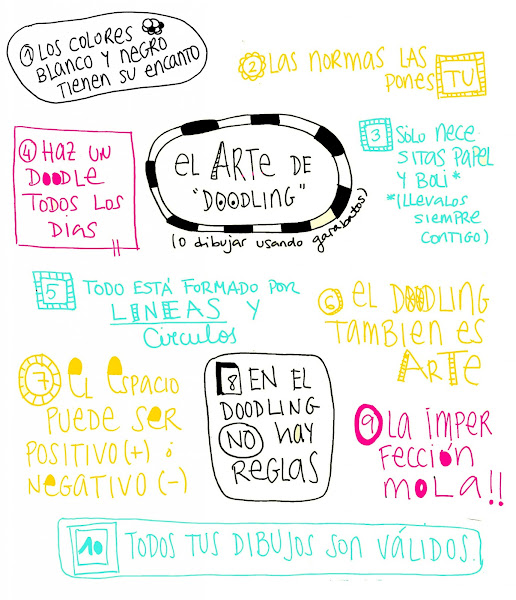 1 LOS COLORES
BLANCO Y NEGRO
TIENEN SU ENCANTO
2 LAS NORMAS LAS
PONES TU
EL ARTE DE
"DOODLING"
(O dibujar usando garabatos)
3 SÓLO NECE
SITAS PAPEL
Y BOLI*
*(LLEVALOS
SIEMPRE
CONTIGO)
4 HAZ UN
DOODLE
TODOS LOS
DIAS
5 TODO ESTÁ FORMADO POR
LINEAS Y
CírculOS
6 EL DOODLING
TAMBIEN ES
ARTE
7 EL ESPACIO
PUEDE SER
POSITIVO (+) ó
NEGATIVO (-)
8 EN EL
DOODLING
NO hay
REGLAS
9 LA IMPER
FECCIÓN
MOLA!!
10 TODOS TUS DIBUJOS SON VÁLIDOS.